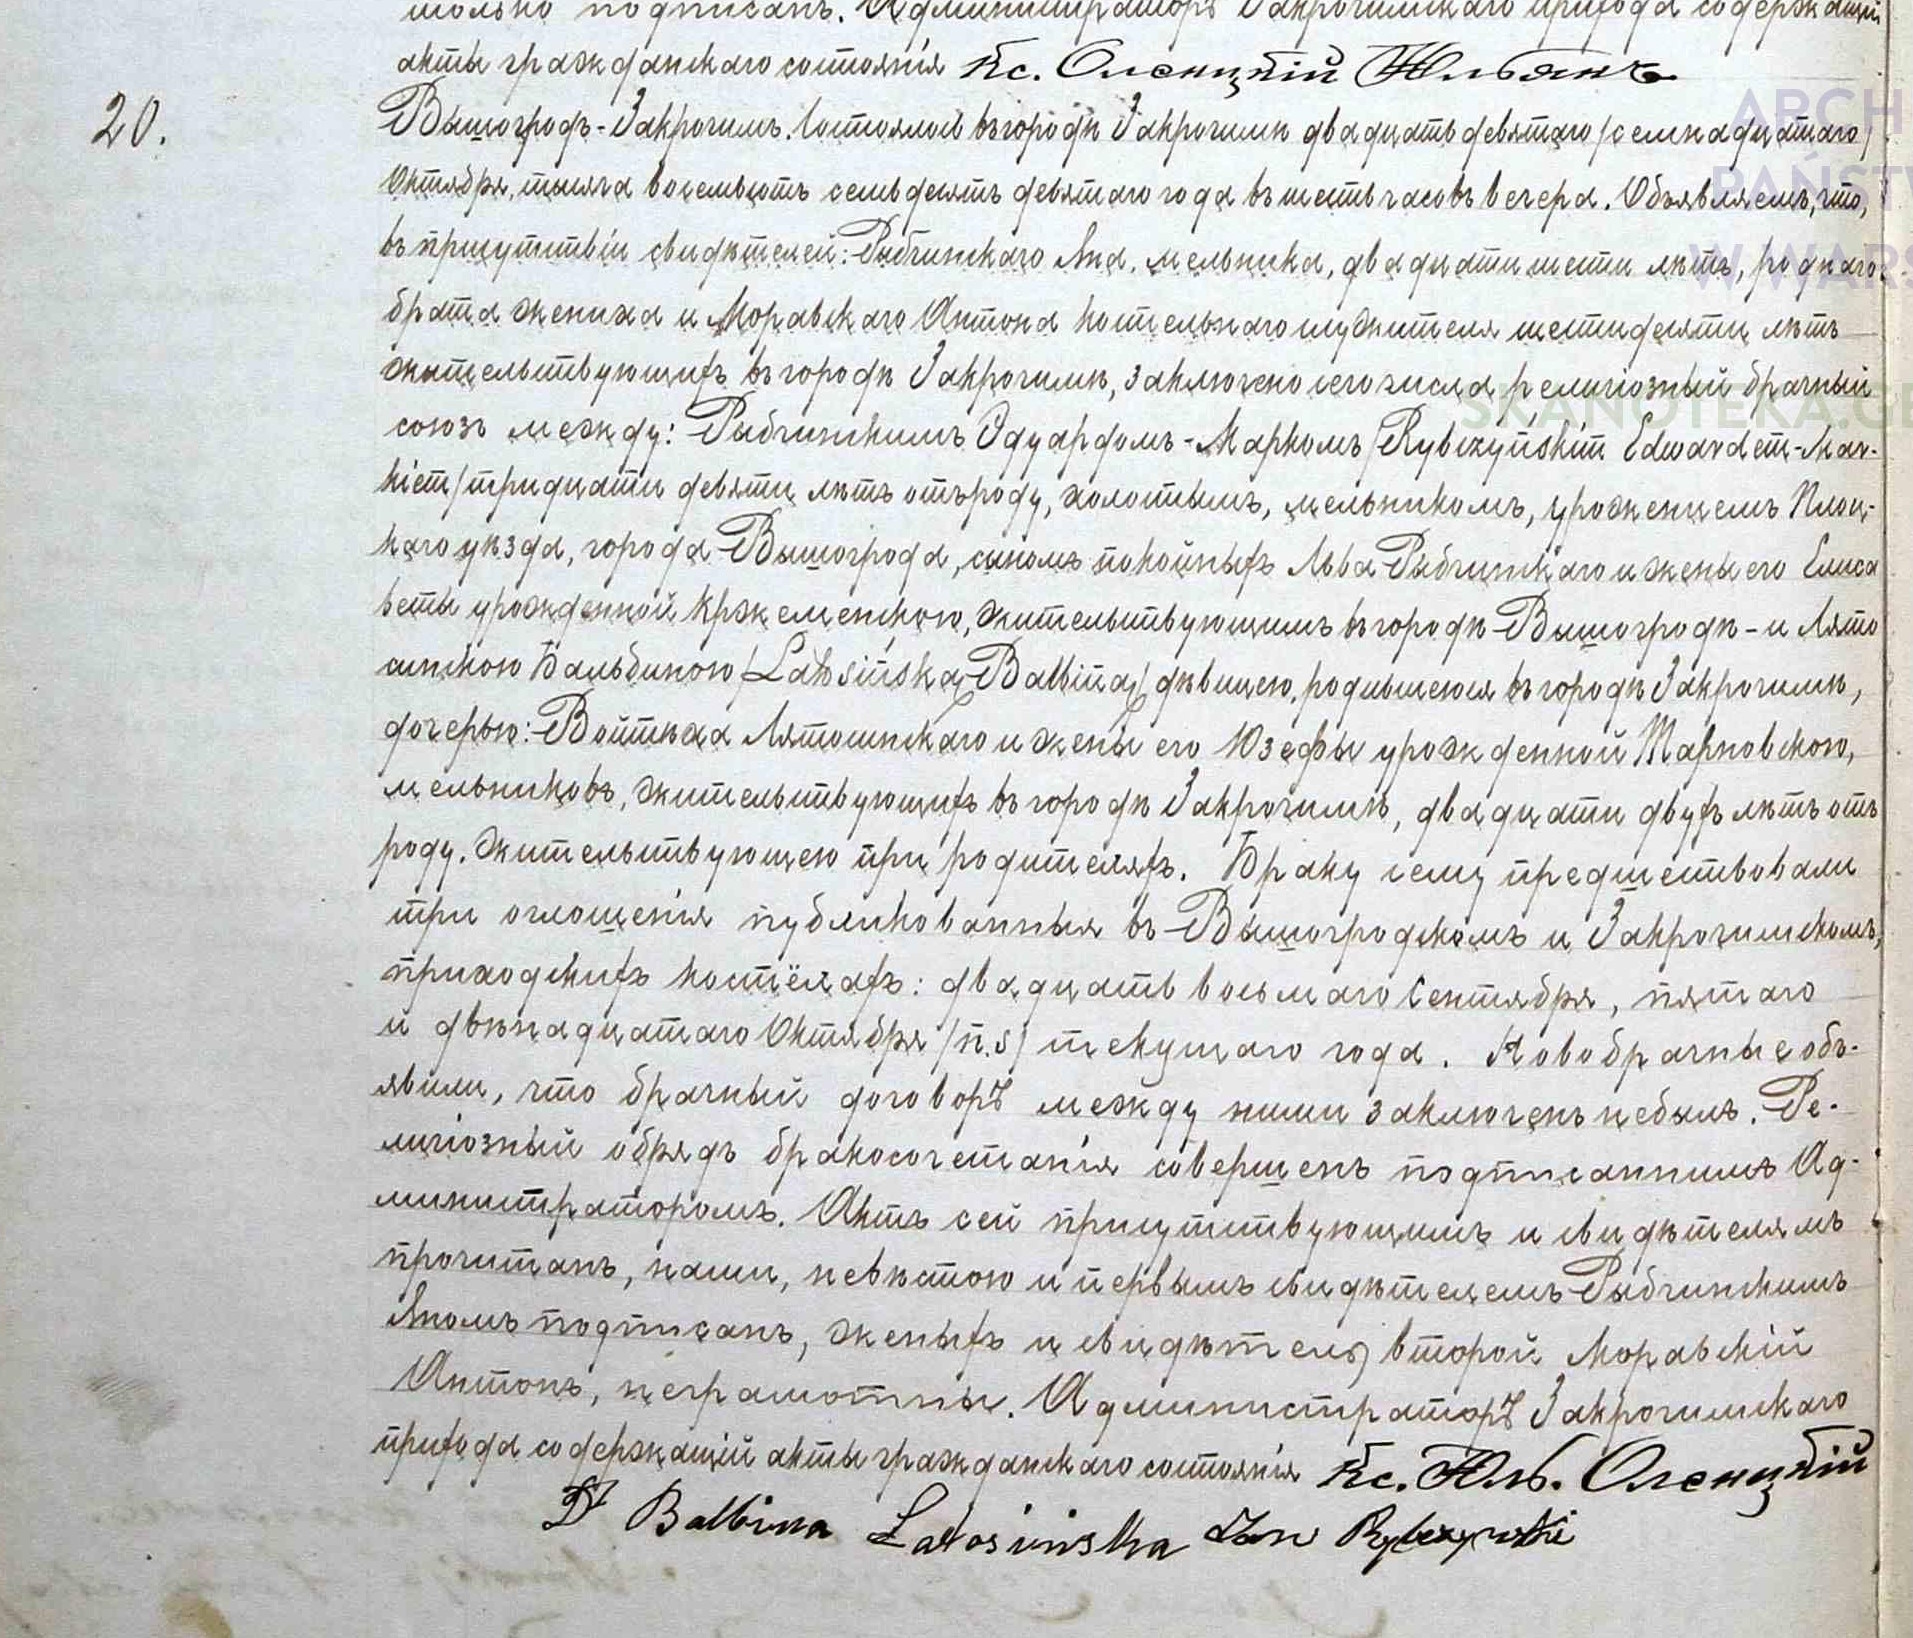 только подписанъ. Администраторъ Закрочимскаго прихода содержащій
акты гражданскаго состоянія Кс. Олсницкій Юльянъ
20.
Вышогродъ-Закрочимъ. Состоялось въ городѣ Закрочимѣ двадцать девятаго /семнадцатаго/
Октября, тысяча восемьсотъ семьдесятъ девятаго года въ шесть часовъ вечера. Объявляемъ, что,
въ присутствіи свидѣтелей: Рыбчинскаго Яна, мельника, двадцати шести лѣтъ, роднаго
брата жениха и Моравскаго Антона костельнаго служителя шестидесяти лѣтъ
жительствующихъ въ городѣ Закрочимѣ, заключено сего числа религіозный брачный
союзъ между: Рыбчинскимъ Эдуардомъ-Маркомъ /Rybczyńskim Edwardem-Mar-
kiem/ тридцати девяти лѣтъ отъ роду, холостымъ, мельникомъ, уроженцемъ Плоц-
каго уѣзда, города Вышогрода, сыномъ покойныхъ Льва Рыбчинскаго и жены его Елиса
веты урожденной Кржеменскою, жительствующимъ въ городѣ Вышогродѣ - и Лято
синскою Бальбиною /Latosińską Balbiną/ дѣвицею, родившеюся въ городѣ Закрочимѣ,
дочерью: Войтѣха Лятосинскаго и жены его Юзефы урожденной Тарновскою,
мельниковъ, жительствующихъ въ городѣ Закрочимѣ, двадцати двухъ лѣтъ отъ
роду. Жительствующею при родителяхъ. Браку сему предшествовали
три оглошенія публикованныя въ Вышогродскомъ и Закрочимскомъ,
приходскихъ костёлахъ: двадцать восьмаго Сентября, пятаго
и двѣнадцатаго Октября /n.s/ текущаго года. Новобрачные объ-
явили, что брачный договоръ между ними заключенъ небылъ. Ре-
лигіозный обрядъ бракосочетанія совершенъ подписаннымъ Ад-
министраторомъ. Актъ сей присутствующимъ и свидѣтелямъ
прочитанъ, нами, невѣстою и первымъ свидѣтелемъ Рыбчинскимъ
Яномъ подписанъ, женыхъ и свидѣтель второй Моравскій
Антонъ, неграмотны. Администраторъ Закрочимскаго
прихода содержащій акты гражданскаго состоянія Кс. Юль. Олсницкій
Balbina Latosinska Jan Rybczynski
ARCH
PAŃSTW
W WARS
SKANOTEKA.GE